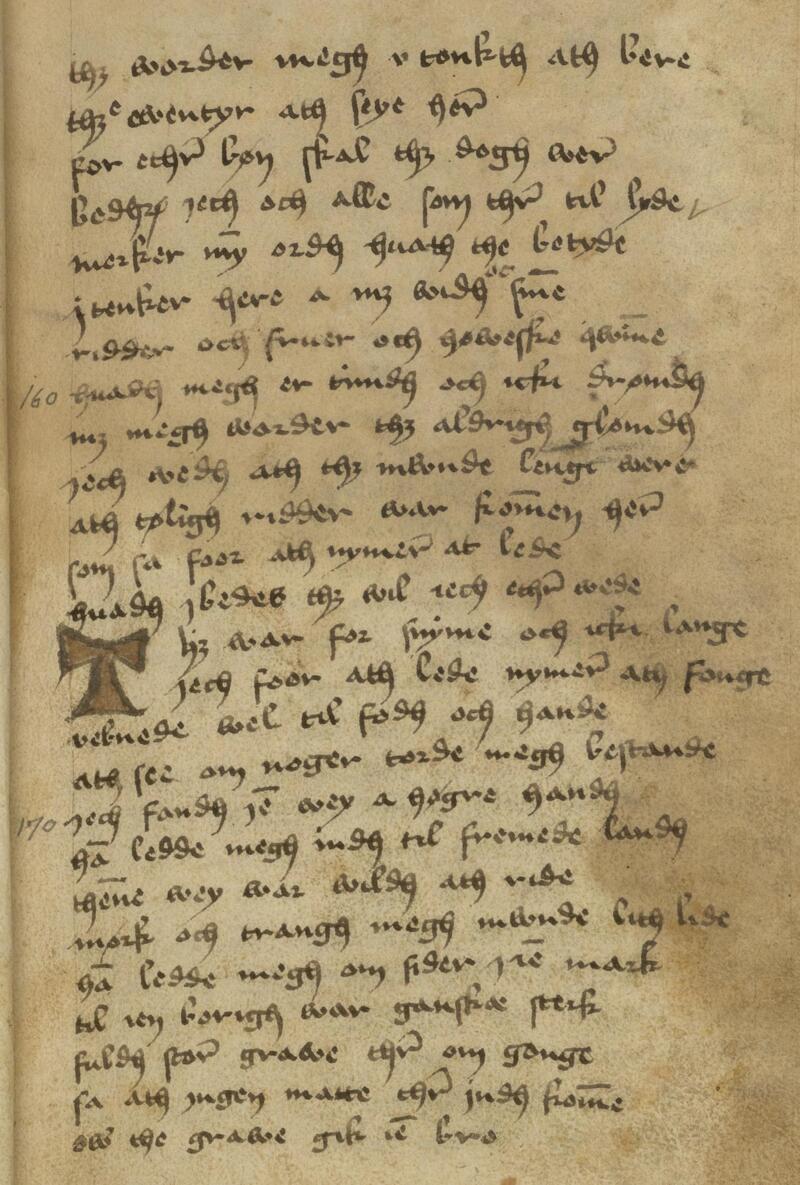 thꝫ worder megh v tonkth ath bere
thꝫe ewentyr ath seye her̄
for ethr̄ bøn skal thꝫ dogh wer̄
jech och alle som thr̄ til lyde
merker mȳ ordh huath the betyde
j tenker here a mꝫ widh oc sīne
ridder och fruer och høweske qwīne
160 huadh megh er timdh och icki drømdh
mꝫ megh worder thꝫ aldrigh glømdh
jech wedh ath thꝫ mwnde lenge were
ath tøligh ridder war kom̄en her̄
som sa foor ath nymer̄ at lede
huadh j bedes thꝫ wil iech ethr̄ wede
Thꝫ war for snyme och icki lange
jech foor ath lede nymer̄ ath fonge
vebnede wel til fødh och hande
ath see om noger torde megh bestande
170 jech fandh jē wey a høgre handh
hā ledde megh indh til fremede landh
then̄e wey war wildh ath ride
mørk och trangh megh mwnde lith lide
hā ledde megh om sider j iē mark
til ien borigh war ganskæ sterk
fuldh stor̄ grawe thr̄ om gonge
sa ath jngen matte thr̄ jndh kom̄e
ow̄ the grawe gik iē bro